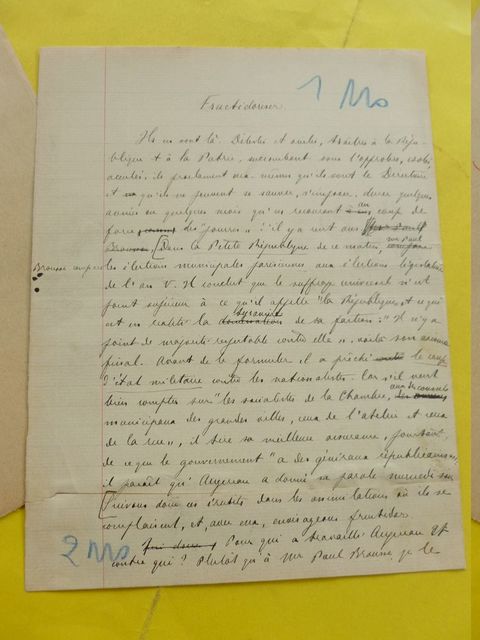 1 Mo
Fructidoriser
Ils en sont là. Détestés et avilis, traîtres à la Répu-
blique et à la Patrie, succombant sous l'opprobre, isolés
acculés, ils proclament eux-mêmes qu'ils sont le Directoire
et qu'ils ne peuvent se sauver, s'imposer, durer quelques
années ou quelques mois qu'en recourant au coup de
force des "jours": il y a cent ans
Dans la Petite République de ce matin, M. Paul
Brousse compare les élections municipales parisiennes aux élections législatives
de l'an V. Il conclut que le suffrage universel n'est
point supérieur à ce qu'il appelle "la République, et qui
est en réalité la tyrannie de sa faction: "Il n'y a
point de majorité respectable contre elle", voilà son axiome
final. Avant de le formuler il a prêché le coup
d'état militaire contre les nationalistes. Car s'il veut
bien compter sur "les socialistes de la Chambre, aux conseils
municipaux des grandes villes, ceux de l'atelier et ceux
de la rue", il tire sa meilleure assurance, jouissant
de ce que le gouvernement "a des généraux républicains",
il paraît qu'Augereau a donné sa parole
Suivons donc ces érudits dans les assimilations où ils se
complaisent, et, avec eux, envisageons fructidor
2 Mo
Pour qui a travaillé Augereau et
contre qui? Plutôt qu'à Mr Paul Brousse je le